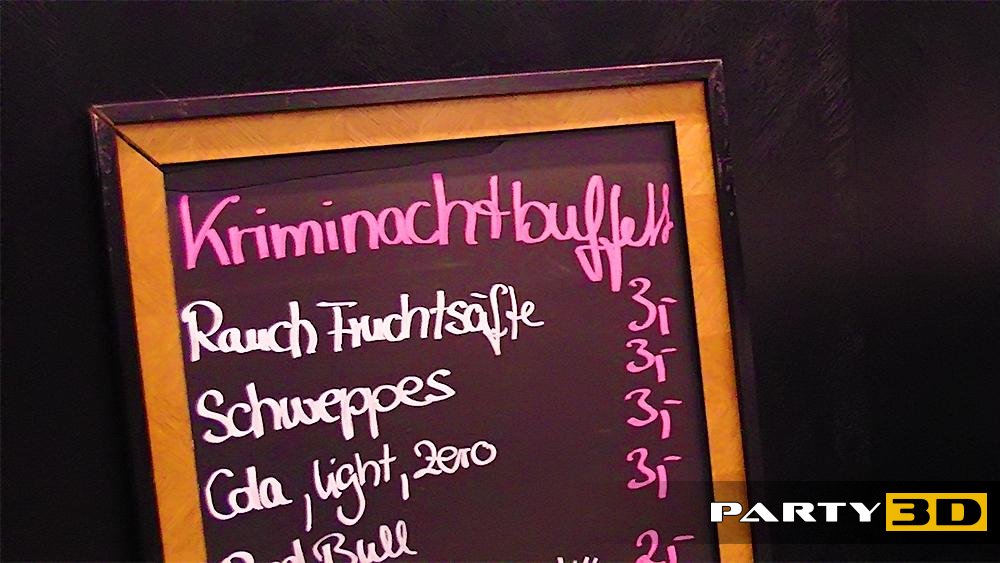 Kriminachtbuffett
Rauch Fruchtsäfte 3,-
Schweppes 3,-
Cola, light, zero 3,-
Red Bull 3,-
PARTY3D